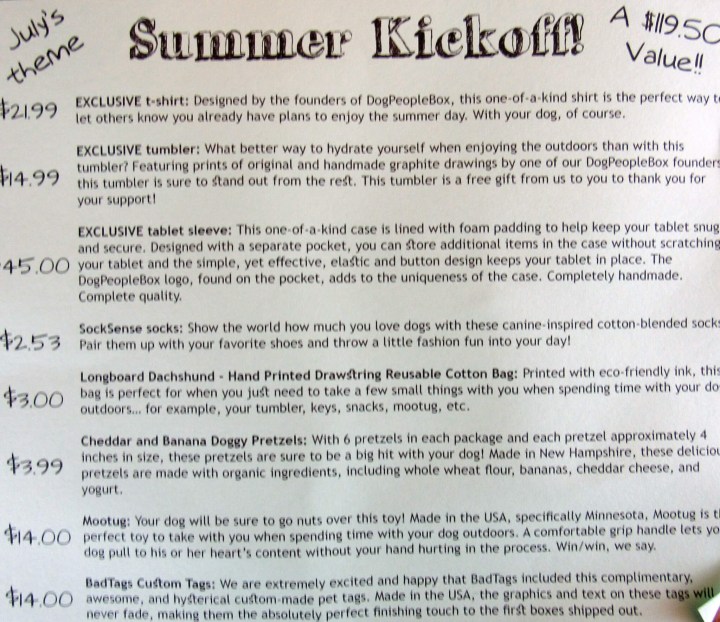 July's theme
Summer Kickoff!
A $119.50 Value!!
$21.99
EXCLUSIVE t-shirt: Designed by the founders of DogPeopleBox, this one-of-a-kind shirt is the perfect way to
let others know you already have plans to enjoy the summer day. With your dog, of course.
$14.99
EXCLUSIVE tumbler: What better way to hydrate yourself when enjoying the outdoors than with this
tumbler? Featuring prints of original and handmade graphite drawings by one of our DogPeopleBox founders
this tumbler is sure to stand out from the rest. This tumbler is a free gift from us to you to thank you for
your support!
45.00
EXCLUSIVE tablet sleeve: This one-of-a-kind case is lined with foam padding to help keep your tablet snug
and secure. Designed with a separate pocket, you can store additional items in the case without scratching
your tablet and the simple, yet effective, elastic and button design keeps your tablet in place. The
DogPeopleBox logo, found on the pocket, adds to the uniqueness of the case. Completely handmade.
Complete quality.
$2.53
SockSense socks: Show the world how much you love dogs with these canine-inspired cotton-blended socks
Pair them up with your favorite shoes and throw a little fashion fun into your day!
$3.00
Longboard Dachshund - Hand Printed Drawstring Reusable Cotton Bag: Printed with eco-friendly ink, this
bag is perfect for when you just need to take a few small things with you when spending time with your do
outdoors... for example, your tumbler, keys, snacks, mootug, etc.
$3.99
Cheddar and Banana Doggy Pretzels: With 6 pretzels in each package and each pretzel approximately 4
inches in size, these pretzels are sure to be a big hit with your dog! Made in New Hampshire, these deliciou
pretzels are made with organic ingredients, including whole wheat flour, bananas, cheddar cheese, and
yogurt.
$14.00
Mootug: Your dog will be sure to go nuts over this toy! Made in the USA, specifically Minnesota, Mootug is th
perfect toy to take with you when spending time with your dog outdoors. A comfortable grip handle lets yo
dog pull to his or her heart's content without your hand hurting in the process. Win/win, we say.
$14.00
BadTags Custom Tags: We are extremely excited and happy that BadTags included this complimentary,
awesome, and hysterical custom-made pet tags. Made in the USA, the graphics and text on these tags will
never fade, making them the absolutely perfect finishing touch to the first boxes shipped out.